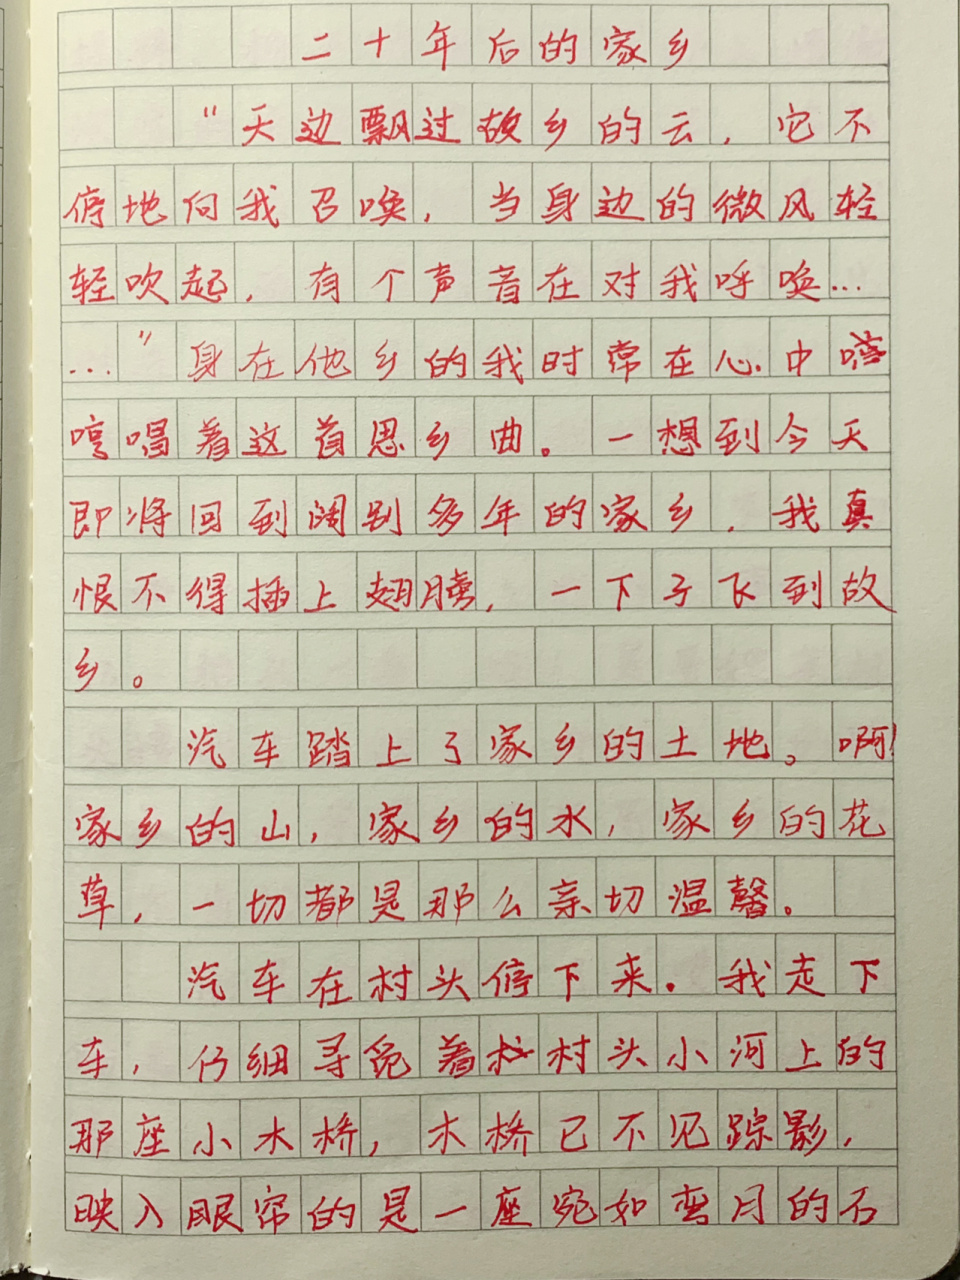 二十年后的家乡
“天边飘过故乡的云，它不
停地向我召唤，当身边的微风轻
轻吹起，有个声音在对我呼唤…
…”身在他乡的我时常在心中
哼唱着这首思乡曲。一想到今天
即将回到阔别多年的家乡，我真
恨不得插上翅膀，一下子飞到故
乡。
汽车踏上了家乡的土地。啊！
家乡的山，家乡的水，家乡的花
草，一切都是那么亲切温馨。
汽车在村头停下来。我走下
车，仔细寻觅着村头小河上的
那座小木桥，木桥已不见踪影，
映入眼帘的是一座宛如弯月的石